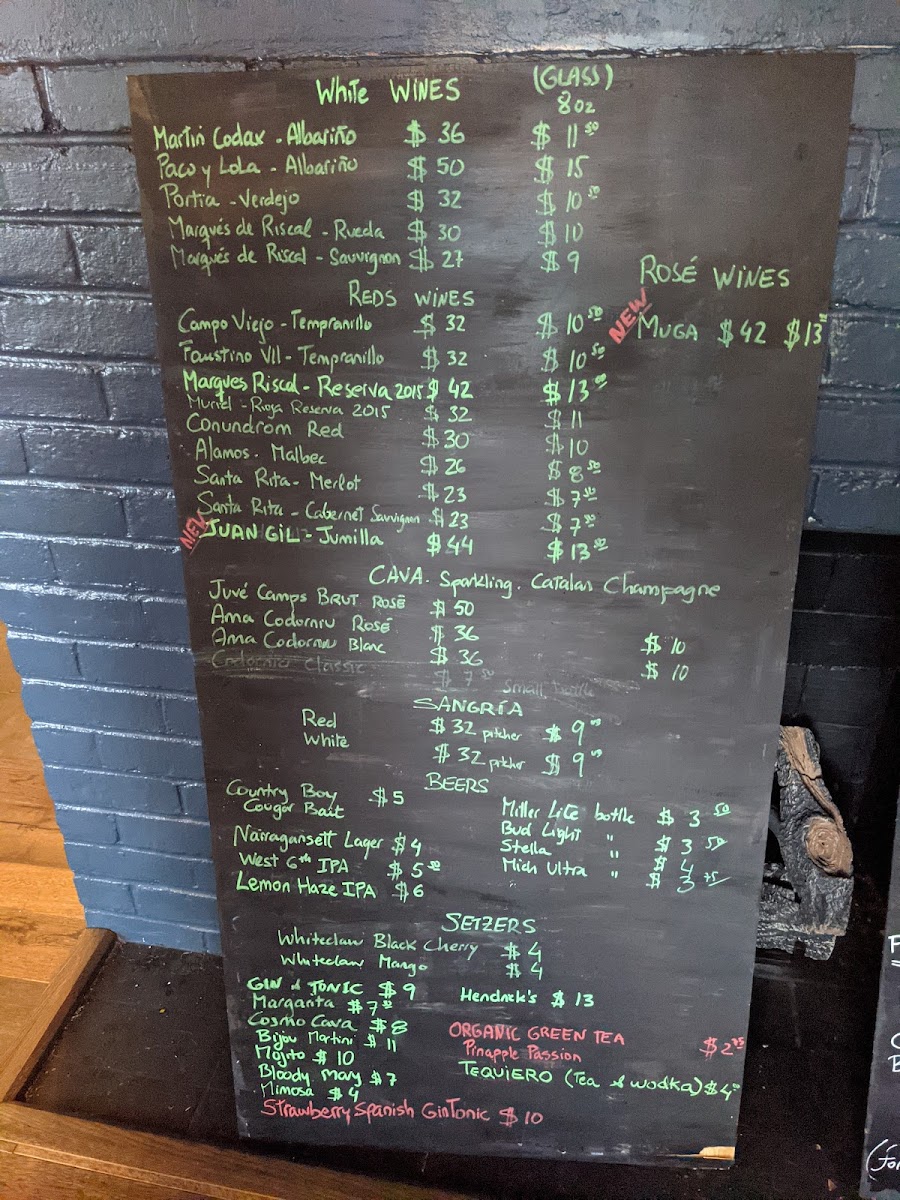 White WINES (GLASS)
8oz
Martin Codax - Albariño $ 36 $ 11 50
Paco y Lola - Albariño $ 50 $ 15
Portia - Verdejo $ 32 $ 10 50
Marqués de Riscal - Rueda $ 30 $ 10
Marqués de Riscal - Sauvignon $ 27 $ 9
REDS WINES
Campo Viejo - Tempranillo $ 32 $ 10 50
Faustino VII - Tempranillo $ 32 $ 10 50
Marques Riscal - Reserva 2015 $ 42 $ 13 00
Muriel - Rioja Reserva 2015 $ 32 $ 11
Conundrom Red $ 30 $ 10
Alamos - Malbec $ 26 $ 8 50
Santa Rita - Merlot $ 23 $ 7 50
Santa Rita - Cabernet Sauvignon $ 23 $ 7 50
NEW JUAN GIL - Jumilla $ 44 $ 13 50
ROSÉ WINES
NEW MUGA $ 42 $ 13
CAVA. Sparkling. Catalan Champagne
Juvé Camps BRUT ROSÉ $ 50
Ama Codorniu ROSÉ $ 36 $ 10
Ama Codorniu Blanc $ 36 $ 10
Codorniu Classic $ 7 50 small bottle
SANGRÍA
Red $ 32 pitcher $ 9
White $ 32 pitcher $ 9
BEERS
Country Boy $ 5
Cougar Bait
Narragansett Lager $ 4
West 6th IPA $ 5 50
Lemon Haze IPA $ 6
Miller Lite bottle $ 3 50
Bud Light " $ 3 50
Stella " $ 4
Mich Ultra " $ 3 75
SETZERS
Whiteclaw Black Cherry $ 4
Whiteclaw Mango $ 4
GIN & TONIC $ 9 Hendrick's $ 13
Margarita $ 7 50
Cosmo Cava $ 8
Bijou Martini $ 11
Mojito $ 10
Bloody Mary $ 7
Mimosa $ 4
ORGANIC GREEN TEA $ 2 95
Pinapple Passion
TEQUIERO (Tea & wodka) $ 4
Strawberry Spanish GinTonic $ 10